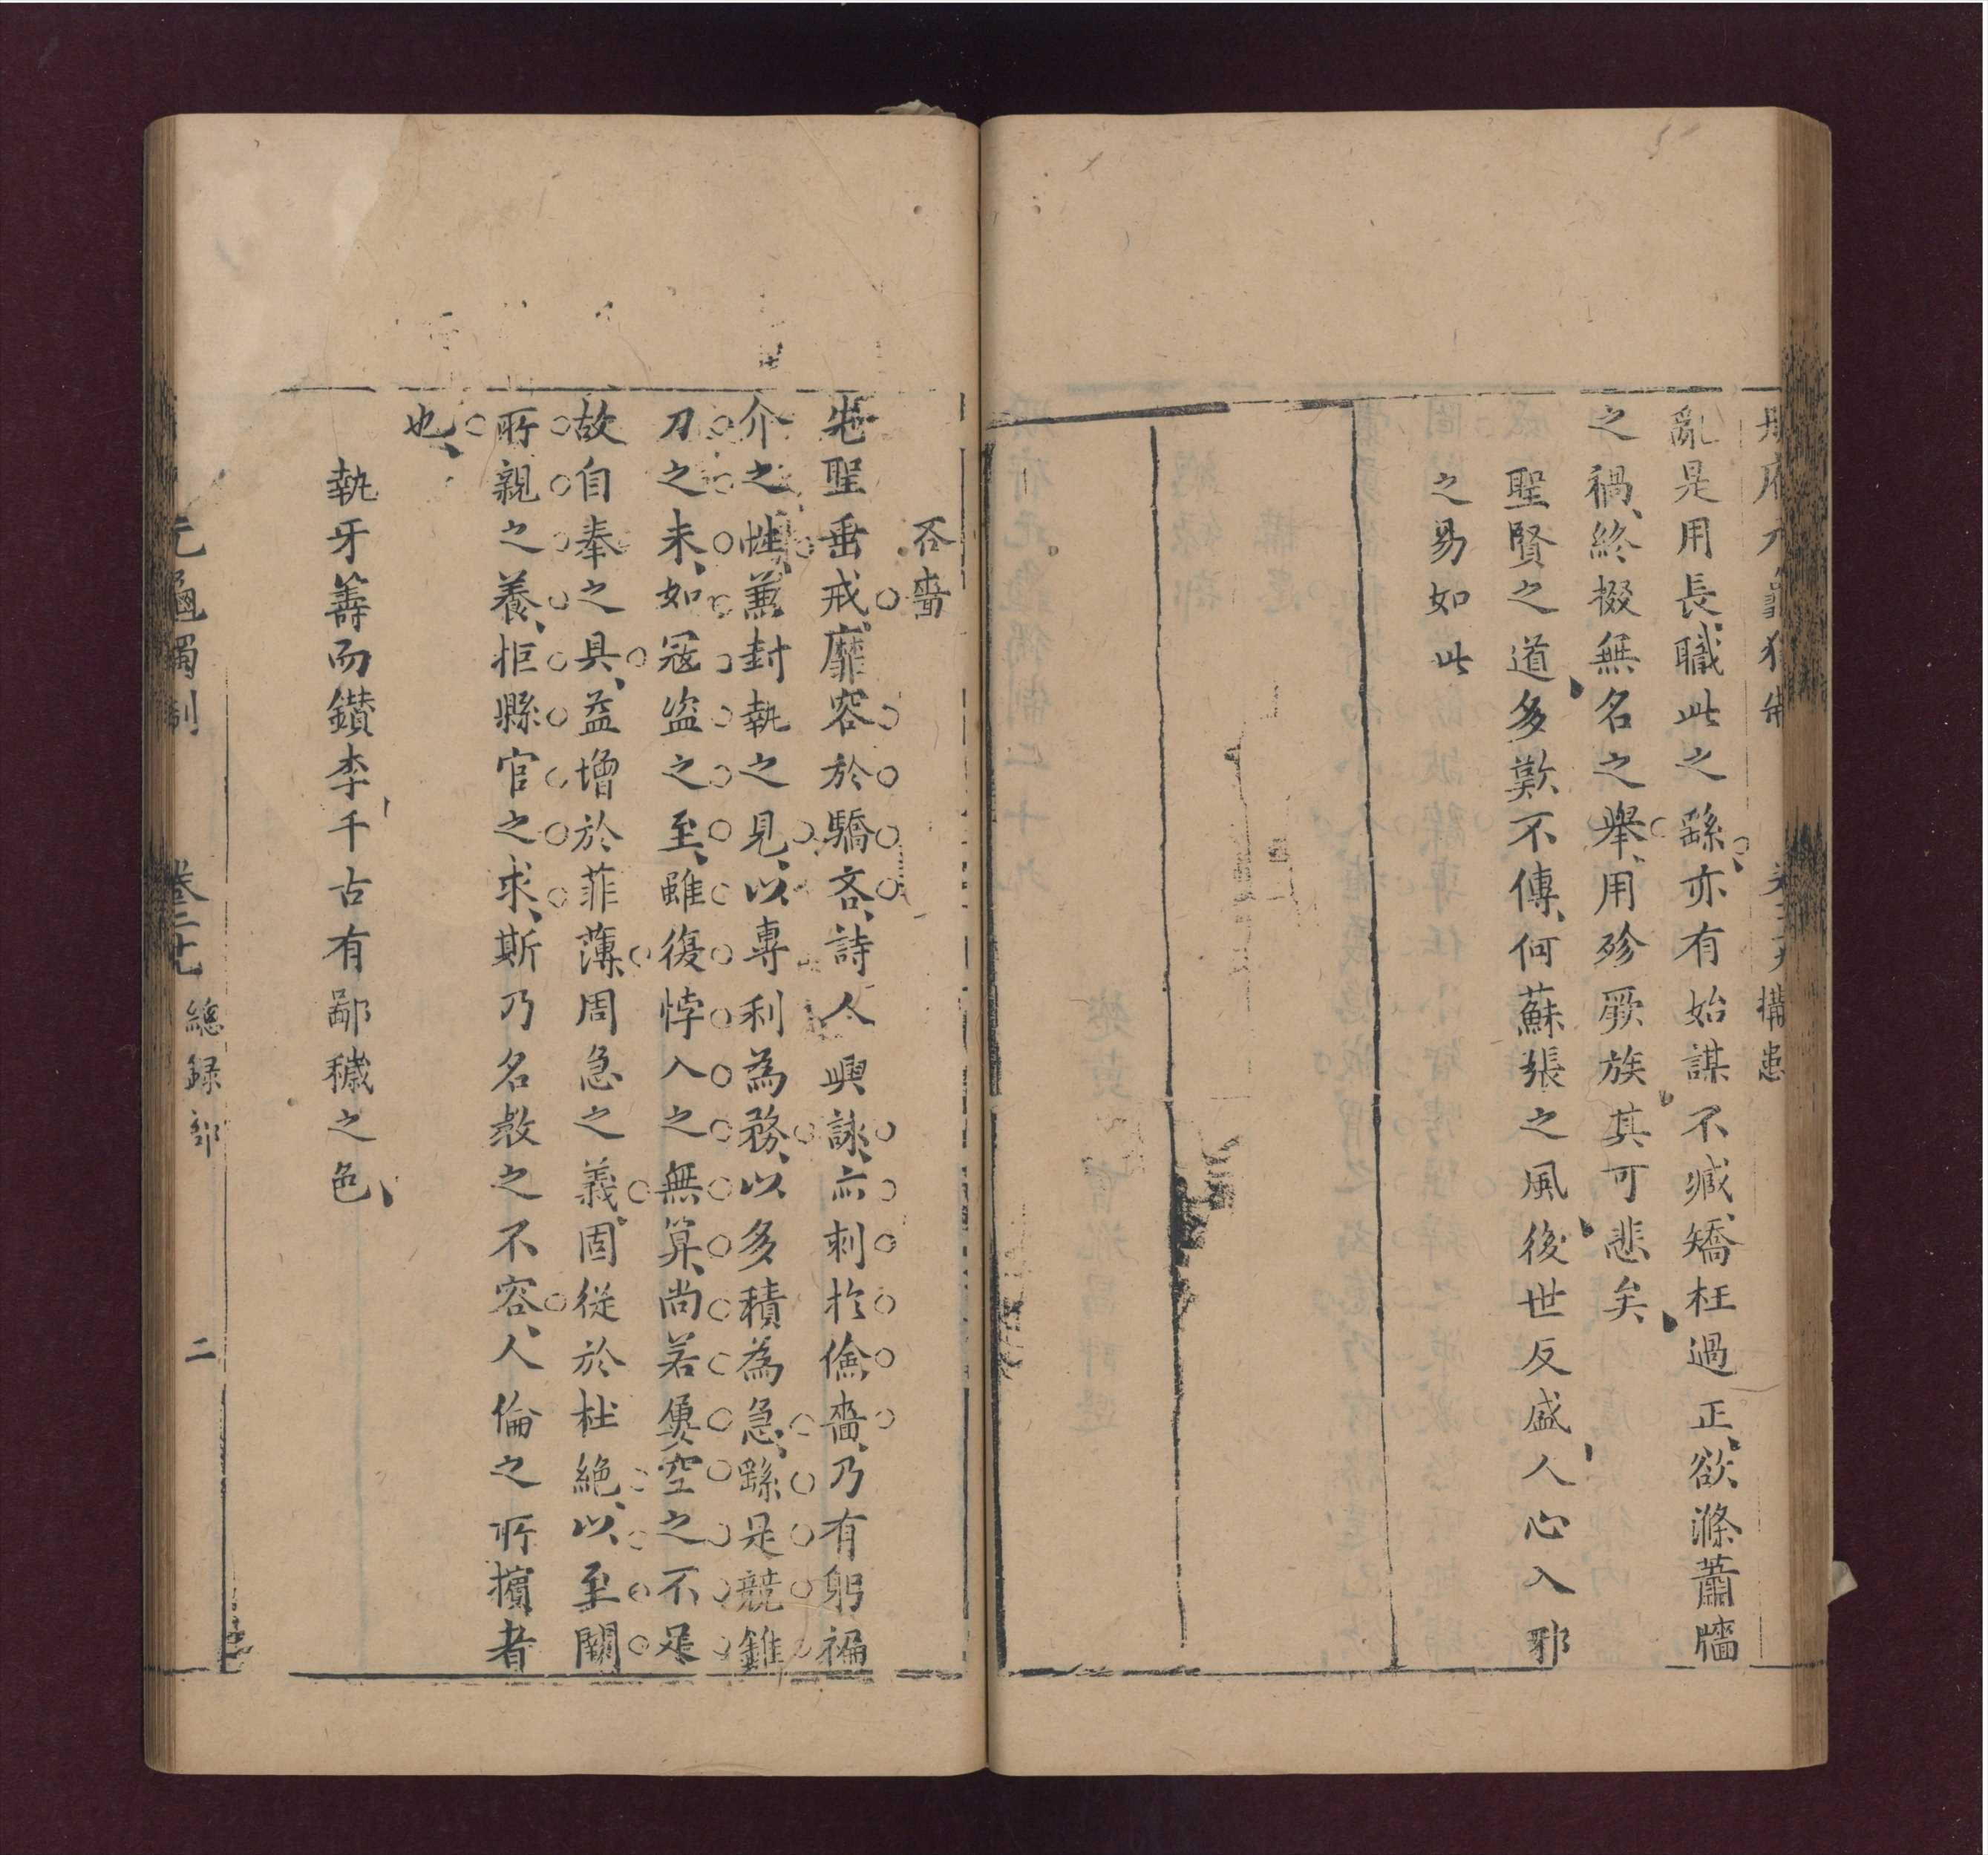 亂是用長職此之繇亦有始謀不臧矯枉過正欲滌蕭牆
之禍終掇無名之舉用殄厥族其可悲矣
聖賢之道多歎不傳何蘇張之風後世反盛人心入邪
之易如此
吝嗇
先聖垂戒靡容於驕吝詩人興詠亦刺於儉嗇乃有躬褊
介之性蓋封執之見以專利為務以多積為急繇是競錐
刀之末如寇盜之至雖復悖入之無算尚若屢空之不足
故自奉之具益增於菲薄周急之義固從於杜絕以至闕
所親之養拒縣官之求斯乃名教之不容人倫之所擯者
也
執牙籌而鑽李千古有鄙穢之色
元龜獨制 卷二十九 總録部 二